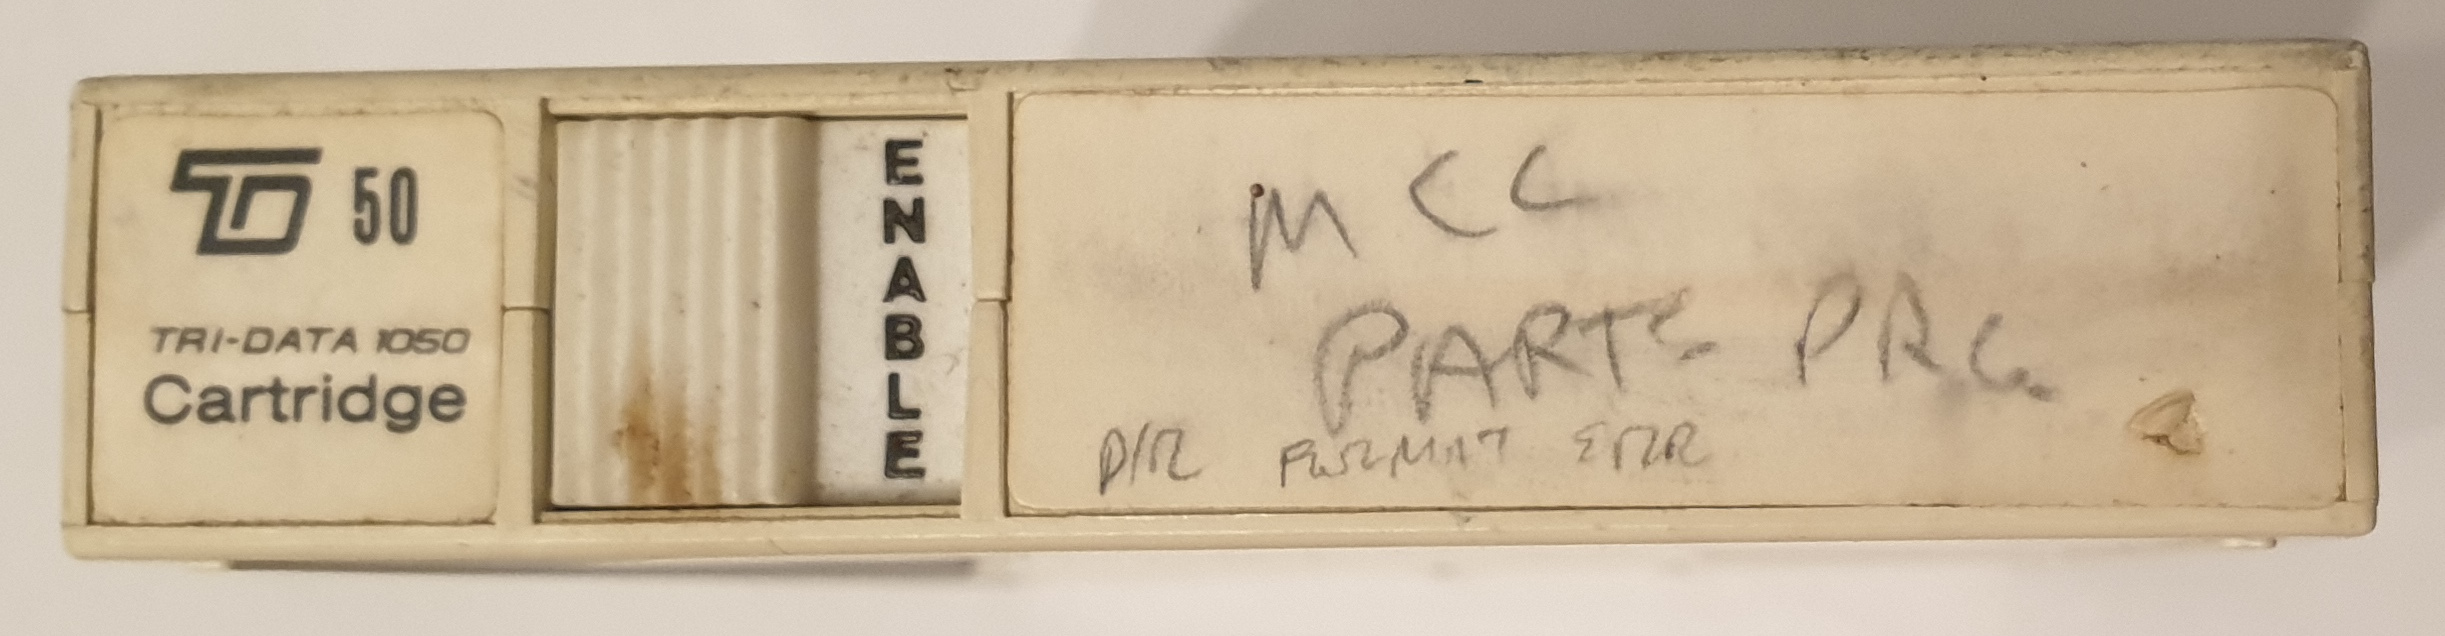 TD 50
TRI-DATA 1050
Cartridge
ENABLE
MCC
PARTS PRG
DIR FORMAT ERR